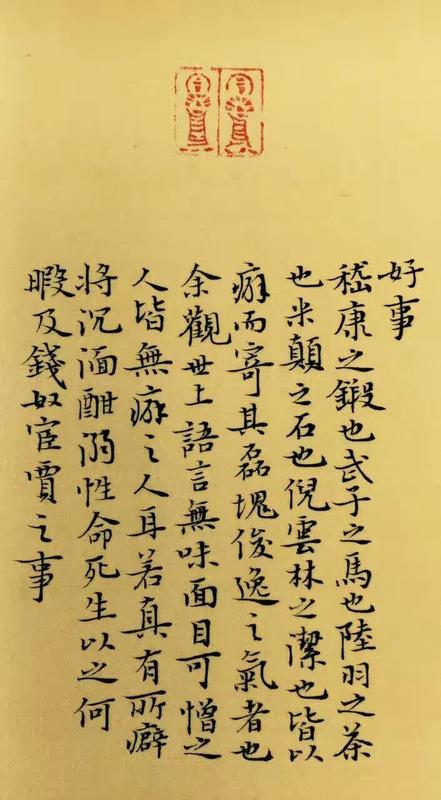 好事
嵇康之鍛也武子之馬也陸羽之茶
也米顛之石也倪雲林之潔也皆以
癖而寄其磊塊俊逸之氣者也
余觀世上語言無味面目可憎之
人皆無癖之人耳若真有所癖
將沉湎酣溺性命死生以之何
暇及錢奴宦賈之事